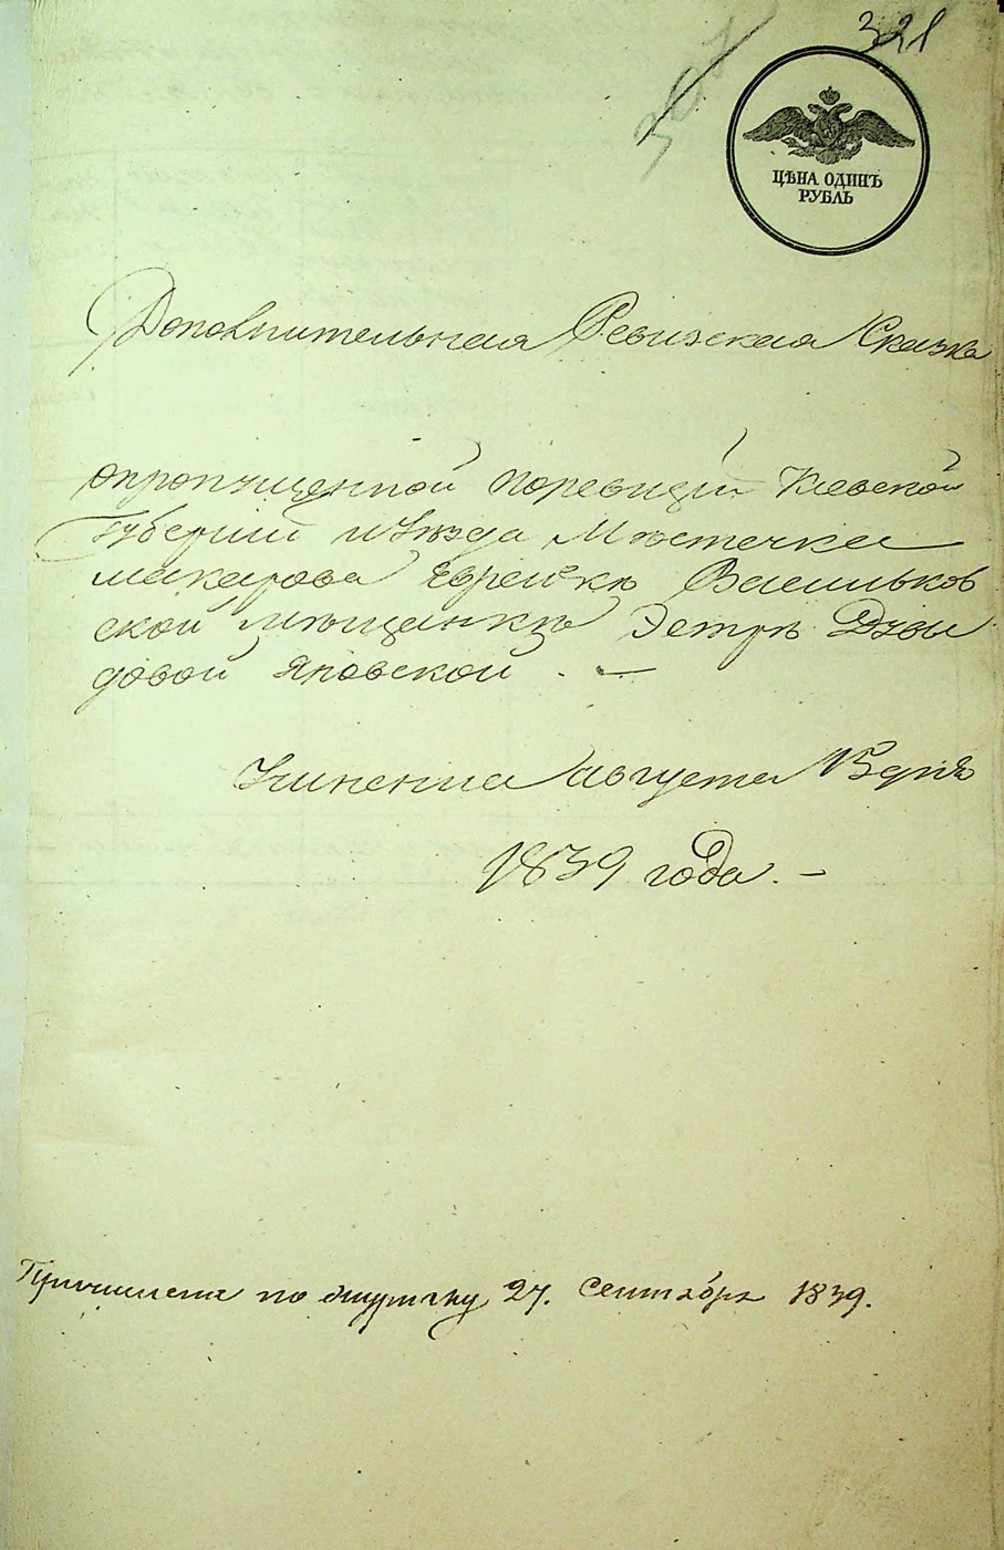 321
ЦѢНА ОДИНЪ
РУБЛЬ
Дополнительная Ревизская Сказка
опропущенной поревизіи Кіевской
Губерніи иУѣзда Мѣстечка
макарова Еврейкѣ Васильков
ской мѣщанкѣ Эстрѣ Дувы
довой Яновской . —
Учинена августа 15 дня
1839 года. —
Причислена по журналу 27. Сентября 1839.